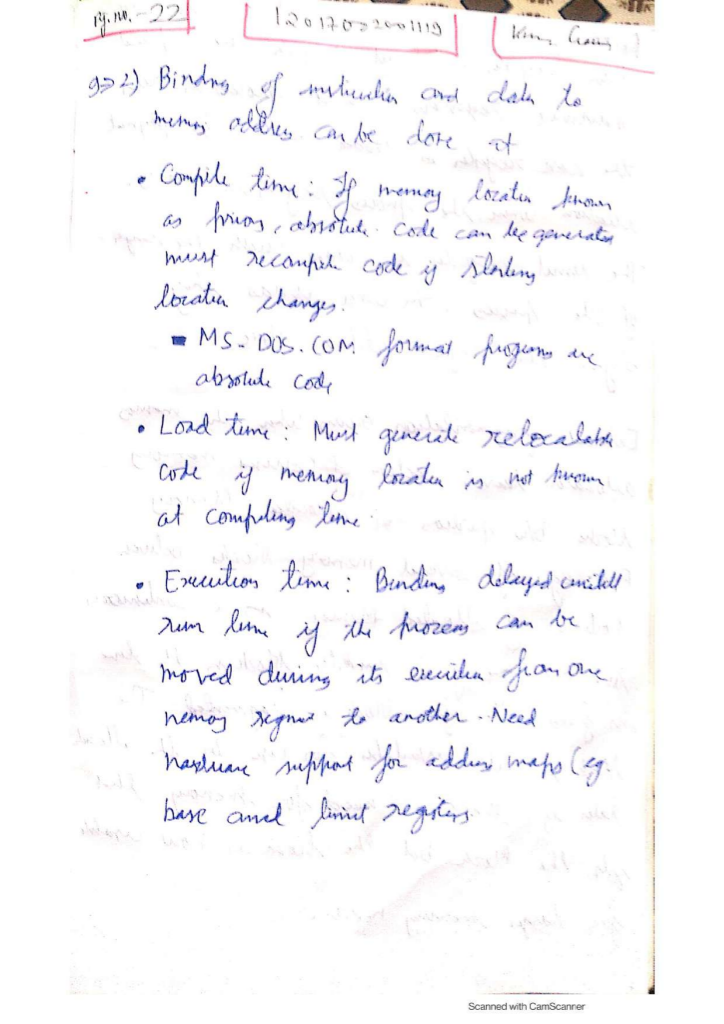 Pg. no. - 22
12017002001119
9 → 2) Binding of instruction and data to
memory address can be done at
• Compile time : If memory location known
as priori, absolute code can be generated
must recompile code if starting
location changes.
- MS-DOS .COM format programs are
absolute code
• Load time : Must generate relocatable
code if memory location is not known
at compiling time.
• Execution time : Binding delayed until
run time if the process can be
moved during its execution from one
memory segment to another. Need
hardware support for address maps (eg.
base and limit registers.
Scanned with CamScanner